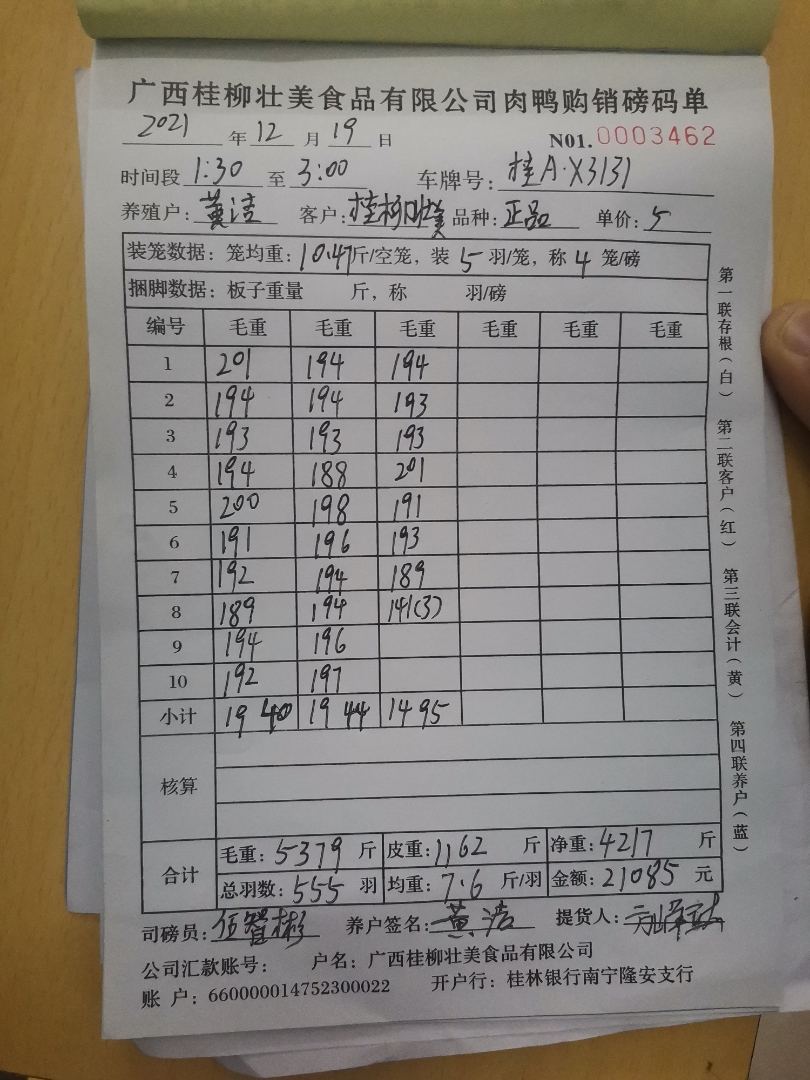 广西桂柳壮美食品有限公司肉鸭购销磅码单
2021 年 12 月 19 日 N01. 0003462
时间段 1:30 至 3:00 车牌号: 桂A·X3131
养殖户: 黄洁 客户: 桂柳壮美 品种: 正品 单价: 5
装笼数据: 笼均重: 10.47斤/空笼, 装 5 羽/笼, 称 4 笼/磅
捆脚数据: 板子重量 斤, 称 羽/磅
编号 毛重 毛重 毛重 毛重 毛重 毛重
1 201 194 194
2 194 194 193
3 193 193 193
4 194 188 201
5 200 198 191
6 191 196 193
7 192 194 189
8 189 194 141(3)
9 194 196
10 192 197
小计 1940 1944 1495
核算
合计
毛重: 5379 斤 皮重: 1162 斤 净重: 4217 斤
总羽数: 555 羽 均重: 7.6 斤/羽 金额: 21085 元
司磅员: 伍智彬 养户签名: 黄洁 提货人:
公司汇款账号: 户名: 广西桂柳壮美食品有限公司
账 户: 660000014752300022 开户行: 桂林银行南宁隆安支行
第一联存根(白) 第二联客户(红) 第三联会计(黄) 第四联养户(蓝)